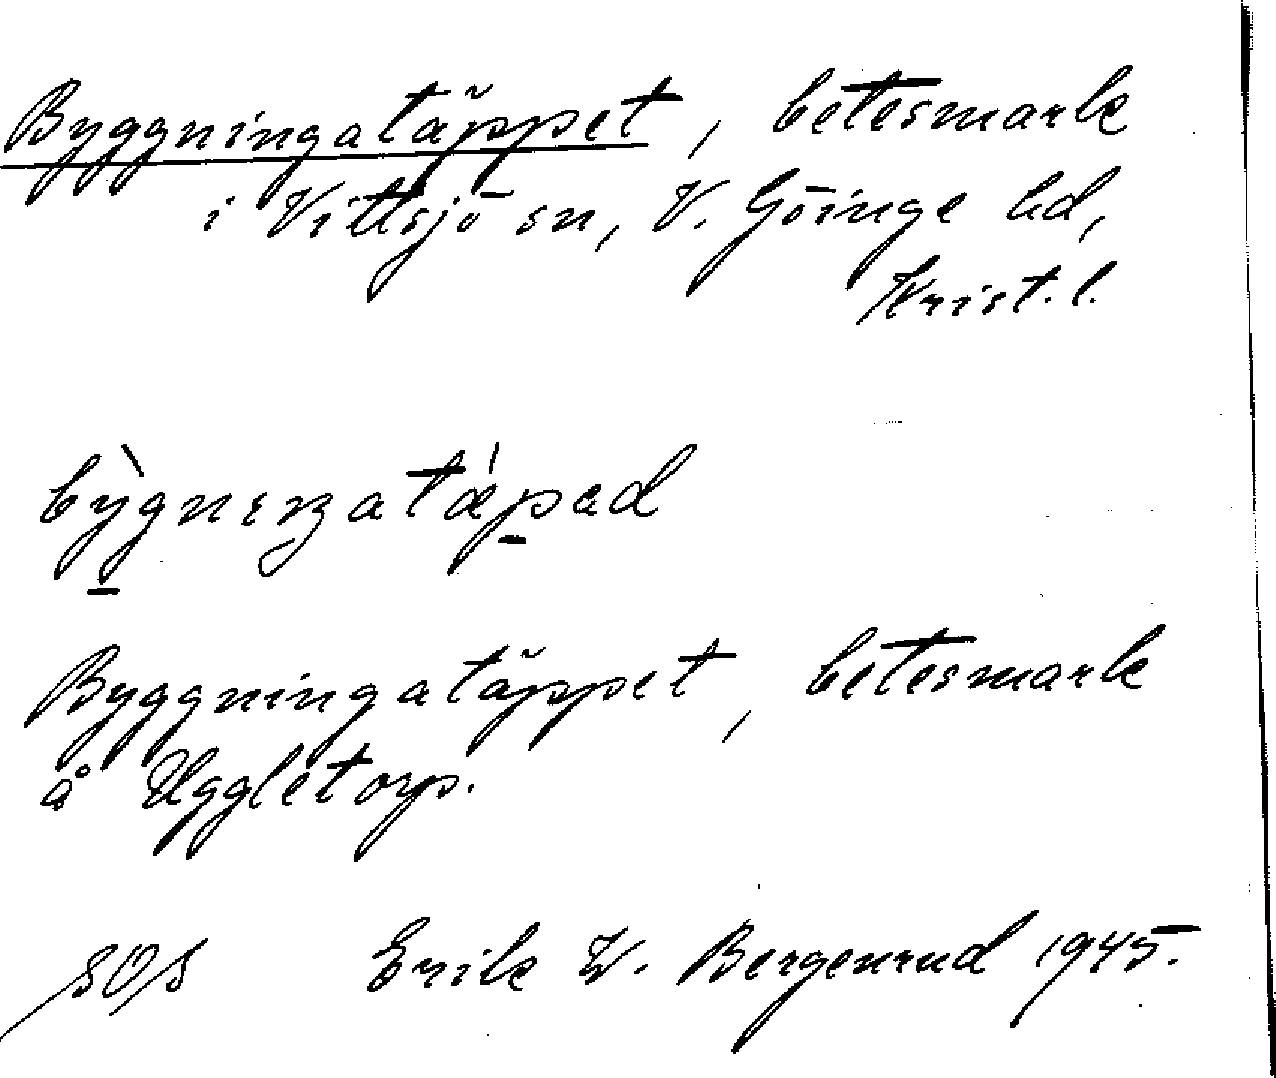 Byggningatäppet, betesmark
i Vittsjö sn, V. Göinge hd,
Krist. l.
Byggningatäppet, betesmark
å Uggletorp.
Erik W. Bergenrud 1945.